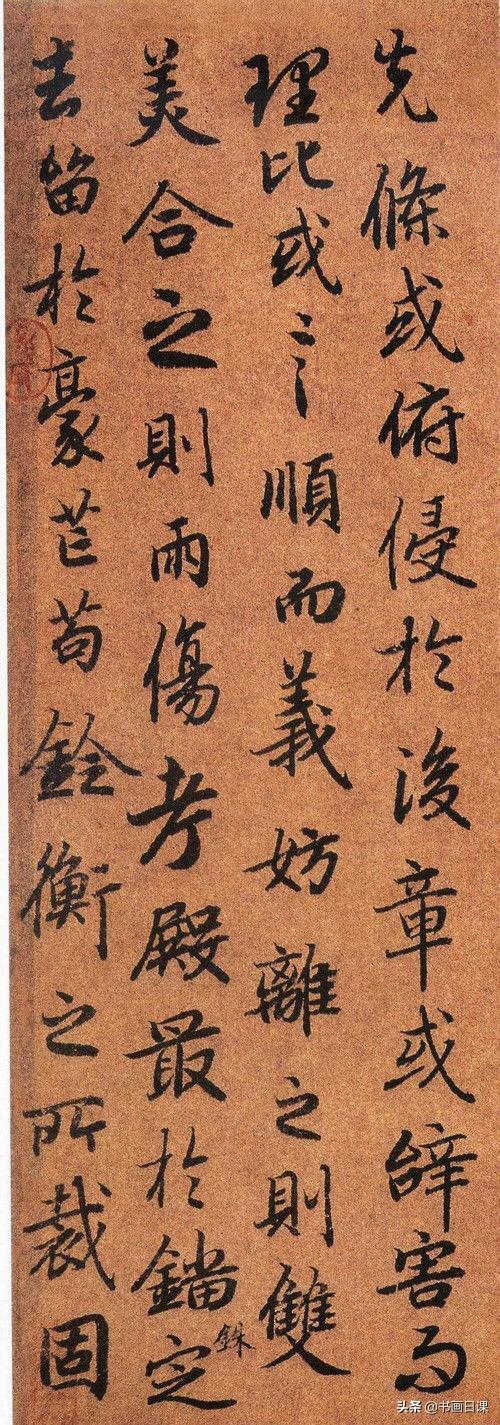 先條或俯侵於後章或辝害而
理比或言順而義妨離之則雙
美合之則兩傷考殿最於錙銖定
去留於豪芒苟銓衡之所裁固
头条 @书画日课